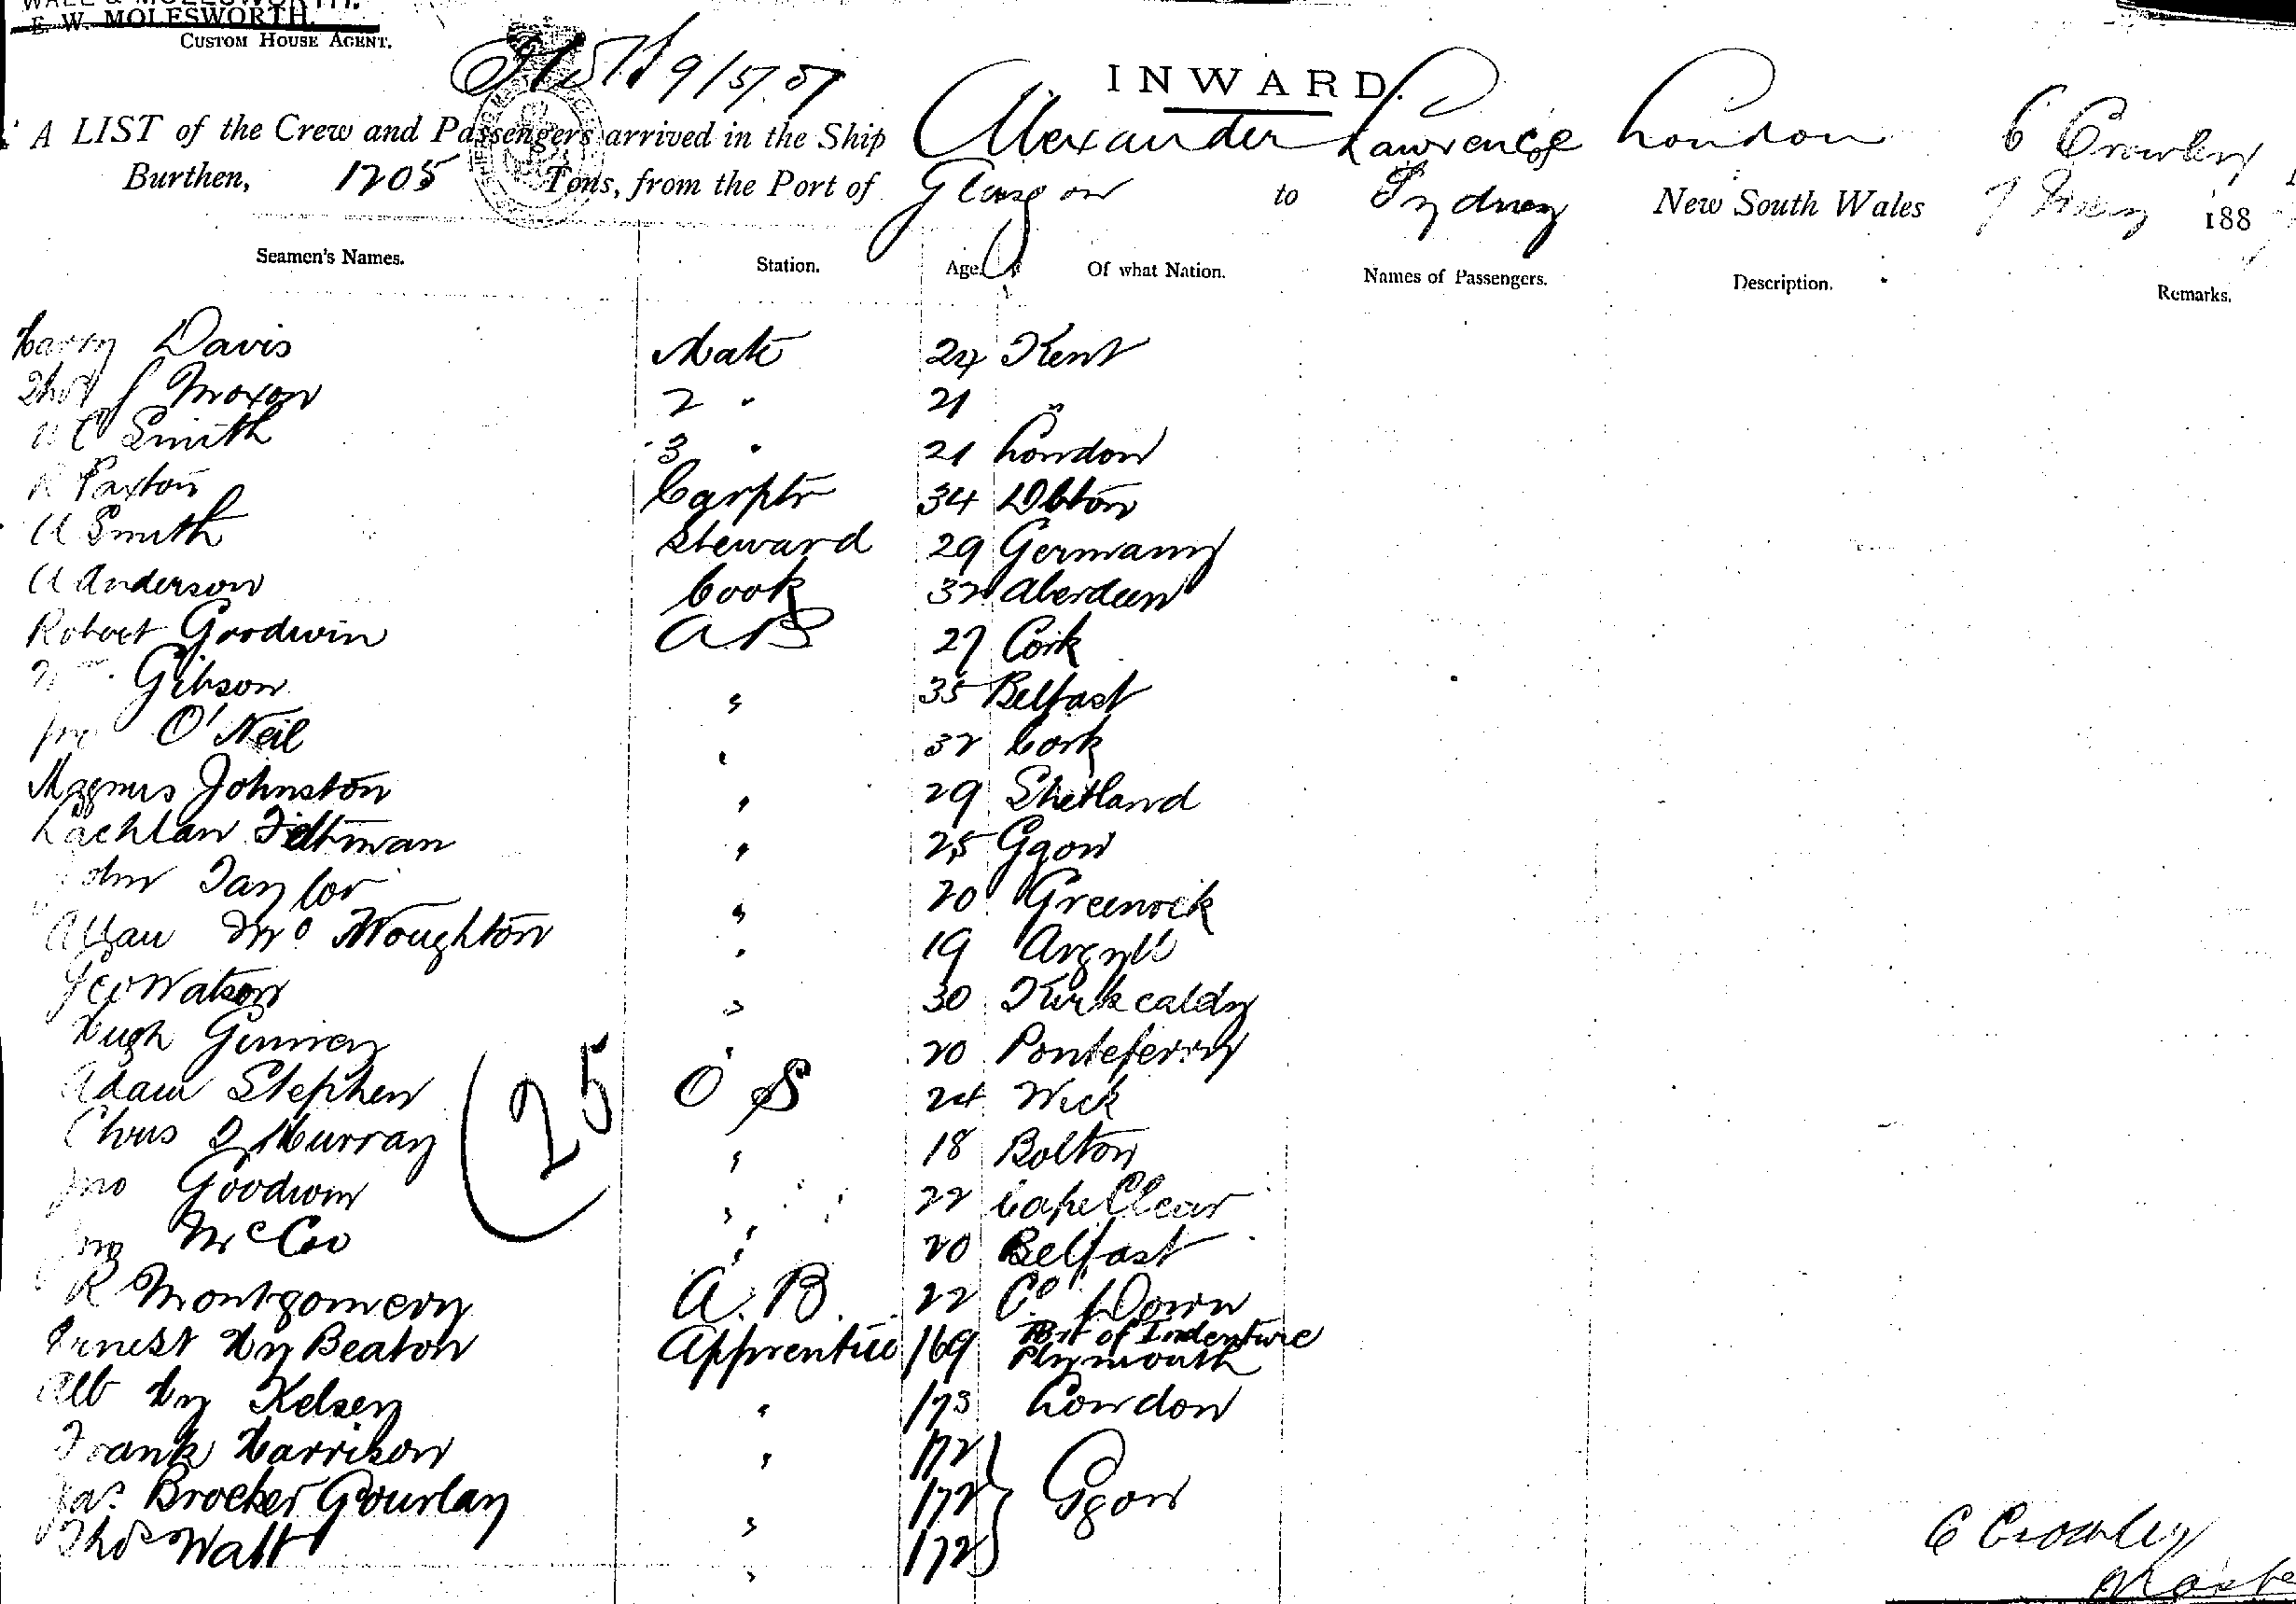 WALL & MOLESWORTH.
E. W. MOLESWORTH.
CUSTOM HOUSE AGENT.
9/5/87
INWARD.
A LIST of the Crew and Passengers arrived in the Ship Alexander Lawrence of London C Crowley
Burthen, 1705 Tons, from the Port of Glasgow to Sydney New South Wales 7 May 1887
Seamen's Names. Station. Age. Of what Nation. Names of Passengers. Description. Remarks.
Harry Davis Mate 24 Kent
Thos J Moxon 2 " 21 "
C Smith 3 " 21 London
R Paxton Carptr 34 Dbton
A Smith Steward 29 Germany
A Anderson Cook 32 Aberdeen
Robert Goodwin AB 27 Cork
Wm Gibson " 35 Belfast
Jno O'Neil " 32 Cork
Magnus Johnston " 29 Shetland
Lachlan Feltman " 25 Ggow
John Taylor " 20 Greenock
Allan Mc Noughton " 19 Argyle
Geo Watson " 30 Kirkcaldy
Hugh " 20 Ponteferry
Adam Stephen O S 24 Wick
(25
Chris D Murray " 18 Bolton
Jno Goodwin " 22 Cape Clear
Jno McCoo " 20 Belfast
R Montgomery A.B. 22 Co Down
Ernest Hy Beaton Apprentice 169 Port of Indenture
Plymouth
Alb Hy Kelsey " 173 London
Frank Harrison " 172
Jas Brocker Gourlay " 172 Ggow
Thos Watt " 172
C Crowley
Master